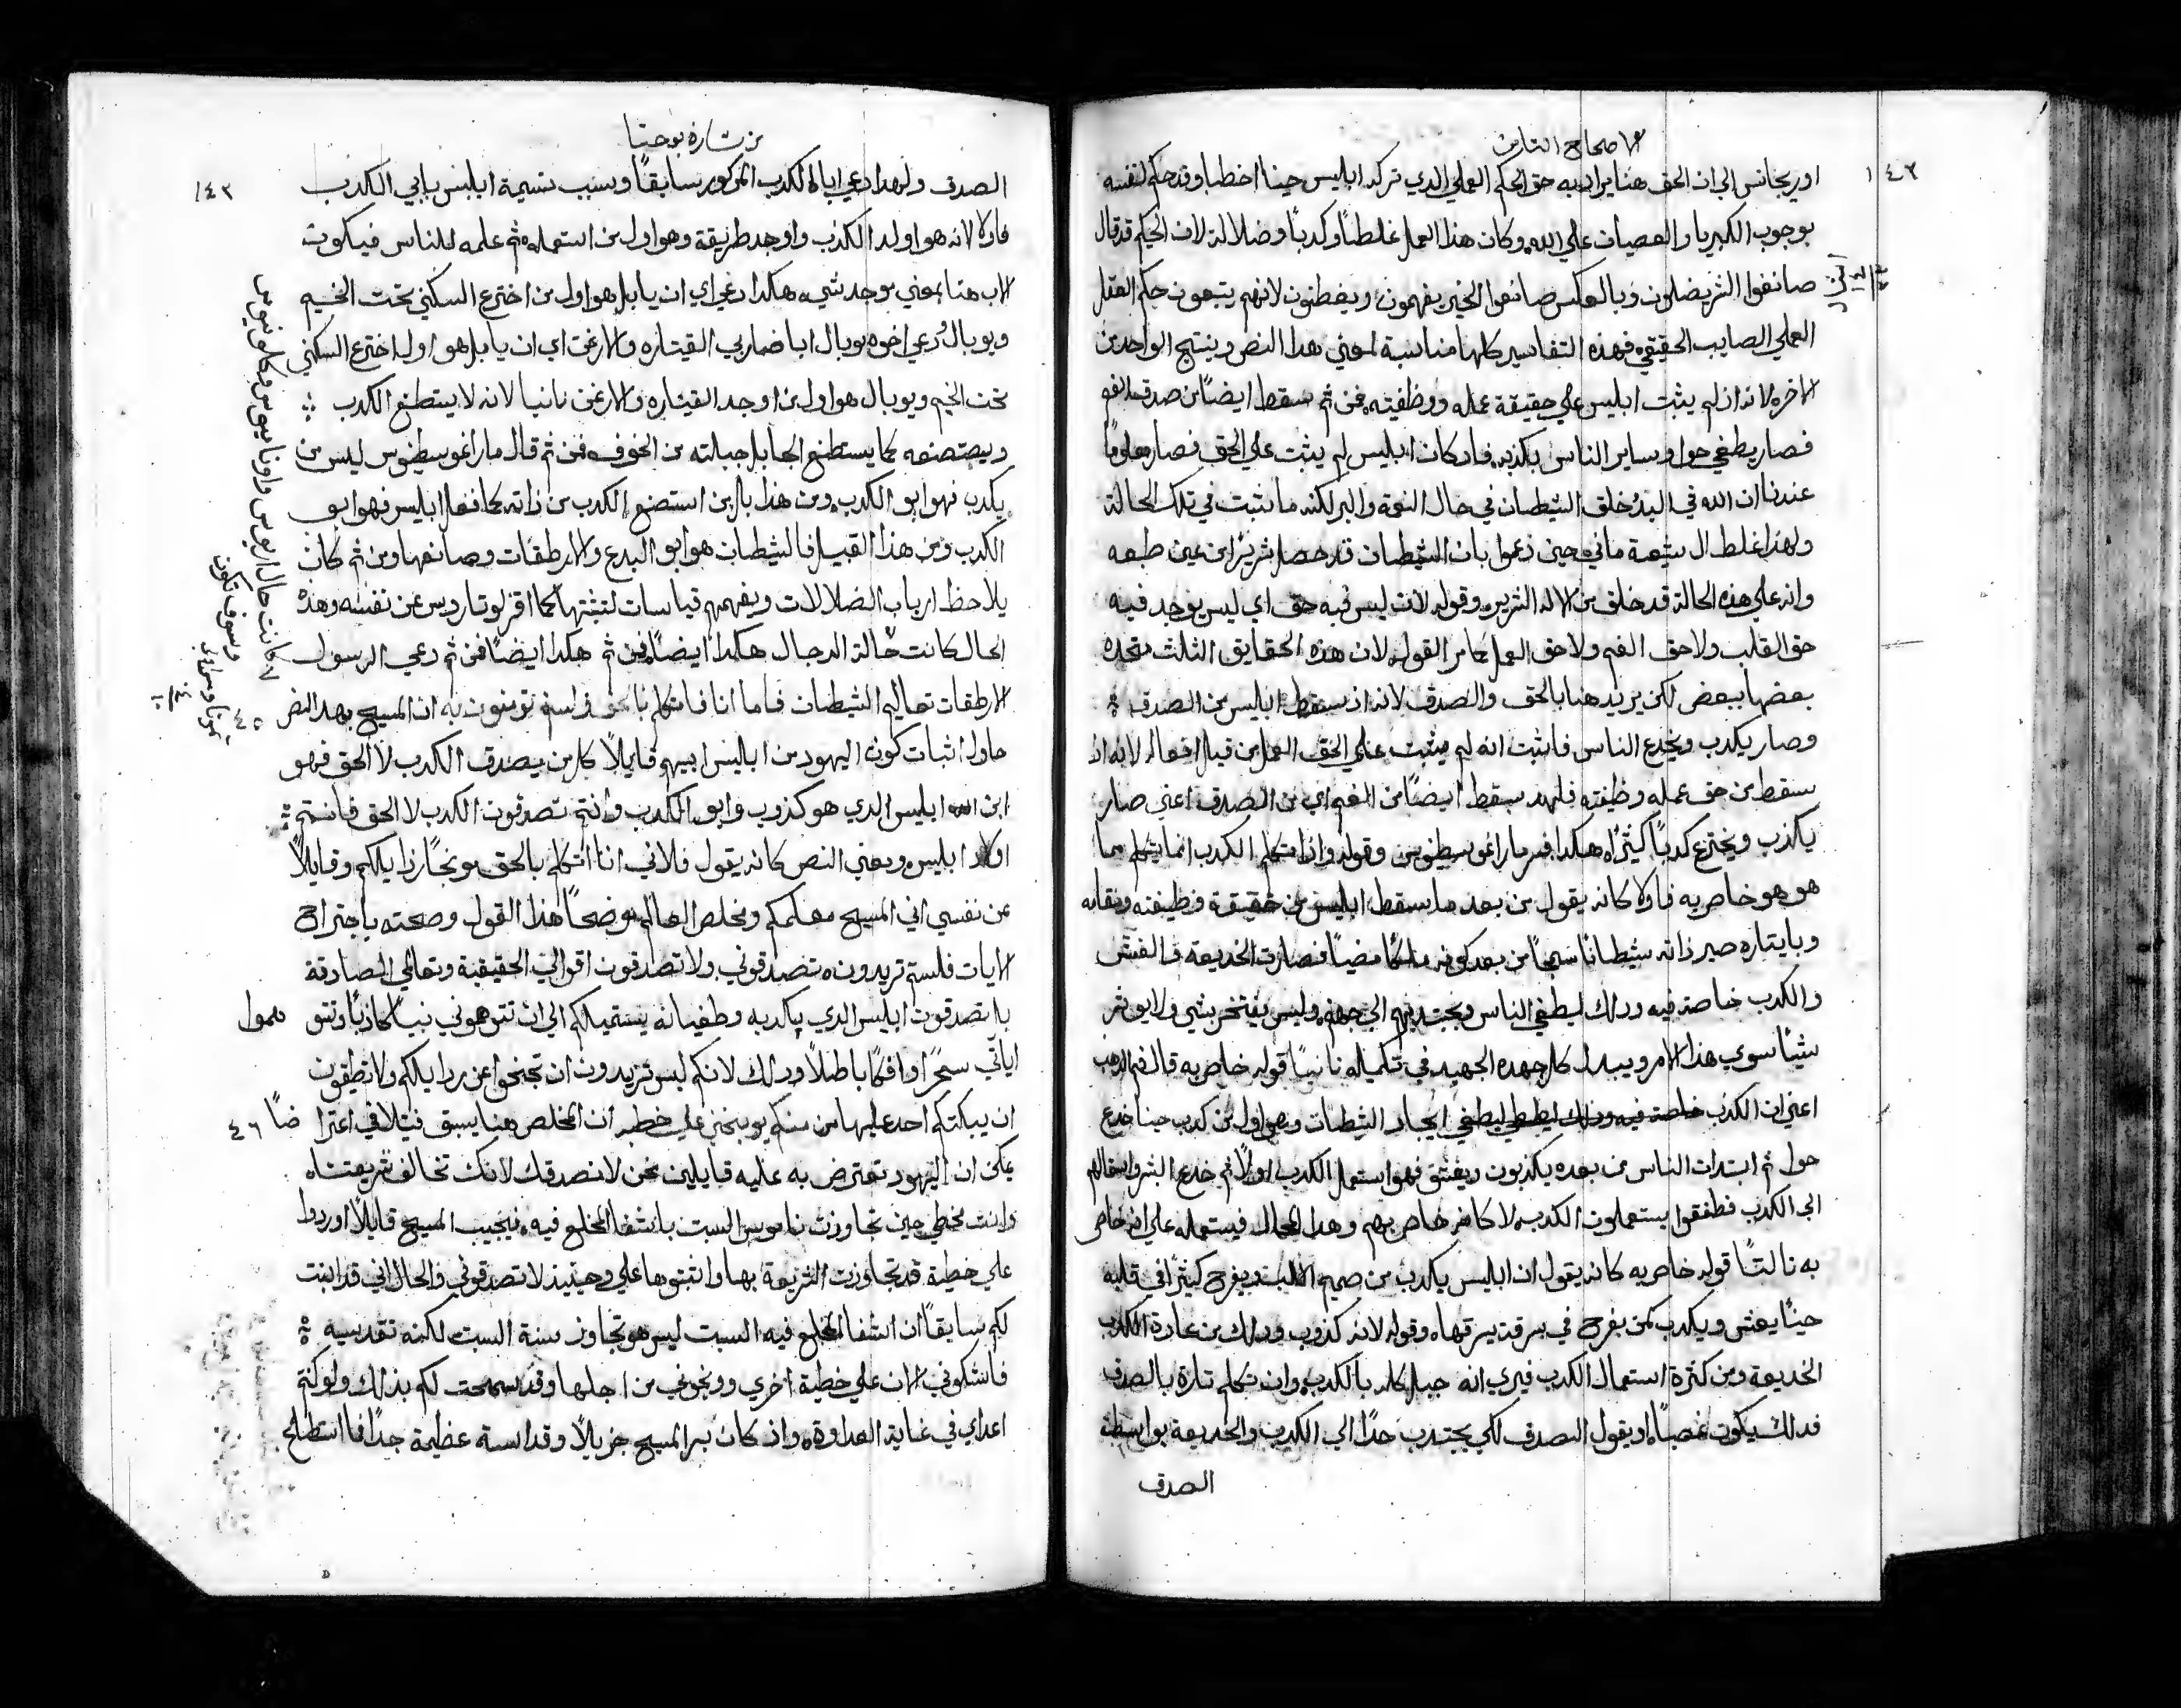 الاصحاح الثامن
١٤٢
اوريجانس الي ان الحق هنا يراد به حق الحكم العملي الدي تركه ابليس حينا اخطا وقد حكم لنفسه
بوجوب الكبريا والعصيان علي الله وكان هذا العمل غلطاً وكدباً وضلالة لان الحكيم قد قال
صانعوا الشر يضلون وبالعكس صانعوا الخير يفهمون ويفطنون لانهم يتبعون حكم العقل
العملي الصايب الحقيقي فهذه التفاسير كلها مناسبة لمعني هدا النص وينتج الواحد من
الاخر لانه اذ لم يثبت ابليس علي حقيقة عمله ووظفيته فمن ثم سقط ايضاً من صدق الفم
فصار يطغي حوا وساير الناس بكدبه فاد كان ابليس لم يثبت علي الحق فصار معلوماً
عندنا ان الله في البدء خلق الشيطان في حال النعمة والبر لكنه ما ثبت في تلك الحالة
ولهذا غلط ال شيعة ماني حين زعموا بان الشيطان قد حصل شريراً من عين طبعه
وانه علي هذه الحالة قد خلق من الاله الشرير وقوله لانه ليس فيه حق اي ليس يوجد فيه
حق القلب ولا حق الفم ولا حق العمل كما مر القول لان هذه الحقايق الثلث متحده
بعضها ببعض لكن يريد هنا بالحق والصدق لانه اذ سقط ابليس من الصدق
وصار يكدب ويخدع الناس فاثبت انه لم يثبت علي الحق العمل من قبل افعاله لانه اذ
سقط من حق عمله وظفته فلهدا سقط ايضاً من الفم اي من الصدق اعني صار
يكذب ويخترع كدباً كثيراً هكدا فسر مار اغوسطنوس وقوله واذا تكلم الكدب انما يتكلم مما
هو هو خاص به فاولا كانه يقول من بعد ما سقط ابليس من حقيقة وظيفته ونقابه
وبايتاره صير ذاته شيطانا سمجاً من بعد كونه ملاكا مضياً فصارت الخديعة والغش
والكدب خاصة فيه ودلك ليطغي الناس ويجتديهم الي جهنم وليس يفتخر بشي ولا يوتر
شياً سوي هذا الامر ويبدل كل جهده الجهيد في تكميله ثانياً قوله خاص به قال فم الدهب
اعني ان الكدب خاصة فيه ودلك ليطغي ايجاد الشيطان وهو اول من كدب حينا خدع
حوا ثم ابتدات الناس من بعده يكذبون ويغش فهو استعمل الكدب اولاً ثم خدع البشر واستمالهم
الي الكدب فطفقوا يستعملون الكدب لا كامر خاص بهم وهدا المحال فيستعمله علي انه خاص
به ثالثاً قوله خاص به كانه يقول ان ابليس يكدب من صميم القلب ويفرح كثيراً في قلبه
حيناً يغش ويكدب كمن يفرح في سرقة يسرقها وقوله لانه كذوب ودلك من عادة الكدب
الخديعة ومن كثرة استعمال الكدب فيري انه جبل كله بالكدب وان تكلم تارة بالصدق
فدلك يكون غصباً او يقول الصدق لكي يجتدب احدًا الي الكدب والخديعة بواسطة
الصدق
من بشارة يوحنا
١٤٣
الصدق ولهدا دعي ابا الكدب المركور سابقاً وسبب تسيمة ابليس بابي الكدب
فاولا لانه هو اولد الكدب واوجد طريقة وهو اول من استعمله ثم علمه للناس فيكون
الاب هنا بمعني موجد شي هكدا دعي اي ان يابل هو اول من اخترع السكني تحت الخيم
ويوبال دعي اخوه يوبال ابا ضاربي القيتاره والارغن اي ان يابل هو اول اخترع السكني
تحت الخيم ويوبال هو اول من اوجد القيتاره والارغن ثانيا لانه لا يستطنع الكدب
ويصتنعه كما يستطنع الحابل جبالته من الخوف فمن ثم قال مار اغوسطنوس ليس من
يكدب فهو ابو الكدب ومن هذا بل من استصنع الكدب من ذاته كما فعل ابليس فهو ابو
الكدب ومن هذا القبيل فالشيطان هو ابو البدع والارطقات وصانعها ومن ثم كان
يلاحظ ارباب الضلالات ويفهمهم قياسات لتثبتها كما اقر لوتاروس عن نفسه وهذه
الحال كانت حالة الدجال هكدا ايضاً فمن ثم هكدا ايضاً فمن ثم دعي الرسول
الارطقات تعاليم الشيطان فاما انا فاتكلم بالحق ولستم تومنون به ان المسيح بهدا النص
٤٥
حاول اثبات كون اليهود من ابليس ابيهم قايلاً كل من يصدق الكدب لا الحق فهو
ابن ابليس الدي هو كذوب وابو الكدب وانتم تصدقون الكدب لا الحق فانتم
اولاد ابليس ومعني النص كانه يقول فلاني انا اتكلم بالحق موبخاً رذايلكم وقايلاً
عن نفسي اني المسيح معلمكم ومخلص العالم موضحاً هذا القول وصحته باجتراح
الايات فلستم تريدون تصدقوني ولا تصدقون اقوالي الحقيقية وتعالمي الصادقة
بل تصدقون ابليس الدي بكدبه وطغيانه يستميلكم الي ان تتوهموني نبياً كاذباً وتتو
هموا
اياتي سحرًا وافكًا باطلاً ودلك لانكم ليس تريدون ان تجنحوا عن ردايلكم ولا تطيقون
ان يبكتكم احد عليها من منكم يوبخني علي خطيه ان المخلص هنا يسبق فيتلافي اعترا
ضاً ٤٦
يمكن ان اليهود تعترض به عليه قايلين نحن لا نصدقك لانك تخالف شريعتناه
وانت تخطي حين تجاوزت ناموس السبت بانشفا المخلع فيه فيجيب المسيح قايلاً اوردوا
علي خطية قد تجاوزت الشريعة بها واثبتوها علي وحينيد لا تصدقوني والحال اني قد اثبت
لكم سابقاً ان انشفا المخلع فيه السبت ليس هو تجاوز سنة السبت لكنه تقديسه
فاشكوني الان علي خطية اخري ووبخوني من اجلها وقد سمحت لكم بذلك ولو كنتم
اعداي في غاية العداوة واذ كان بر المسيح جزيلاً وقداسته عظيمة جداً فما استطلح
كانت حال اريوس واونابيوس ومكدونيوس
وسوف تكون